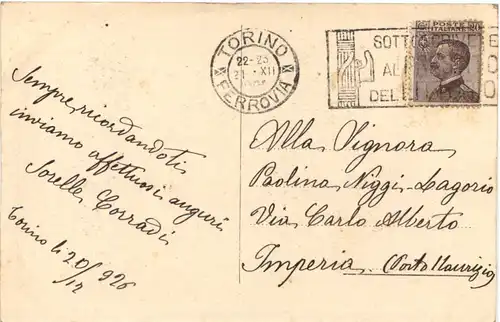 TORINO
22-23
21 · XII
FERROVIA
SOTTOSCRI
AL
DEL
POSTE
ITALIANE
Sempre ricordandoti
inviamo affettuosi auguri
Sorelle Corradi
Torino li 20/12 926
Alla Signora
Paolina Niggi-Lagorio
Via Carlo Alberto
Imperia (Porto Maurizio)